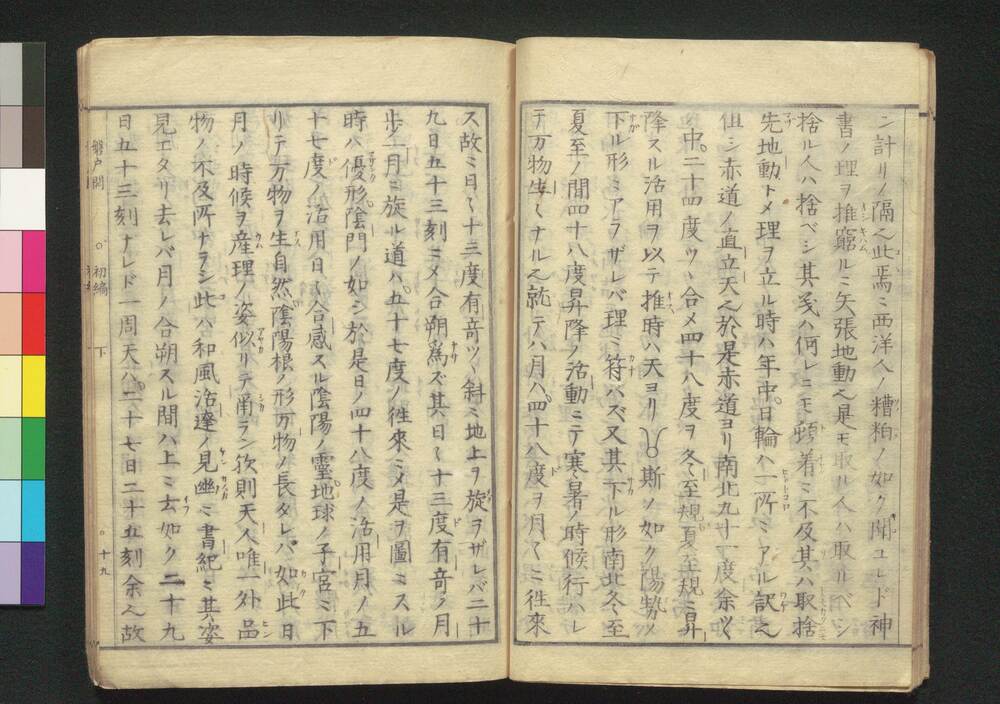 ン計リノ隔ヘ此焉ミ西洋人ノ糟粕ノ如ク聞ユレド神
書ノ理ヲ推窮ルミ矢張地動ヘ是モ取ル人ハ取ルベシ
捨ル人ハ捨ベシ其義ハ何レニモ頓着ミ不及其ハ取捨
先地動トメ理ヲ立ル時ハ年中日輪ハ一所ミアル訳ヘ
但シ赤道ノ直立天ヘ於是赤道ヨリ南北九十一度余ツヽ
中二十四度ツヽ合メ四十八度ヲ冬至規夏至規ミ昇
降スル活用ヲ以テ推時ハ天ヨリ斯ノ如ク陽勢メ
下ル形ミアラザレバ理ミ符バズ又其下ル形南北冬至
夏至ノ間四十八度昇降ノ活動ニテ寒暑ノ時候行ハレ
テ万物生々ナルヘ就テハ月ハ四十八度ヲ月々ミ往來
ス故ミ日々十三度有竒ツヽ斜ミ地上ヲ旋ヲザレバ二十
九日五十三刻ミメ合朔為ズ其日々十三度有竒ノ月
歩一月ミ旋ル道ハ五十七度ノ往來ミメ是ヲ圖ミスル
時ハ優形陰門ノ如シ於是日ノ四十八度ノ活用月ノ五
十七度ノ活用日々合感スル陰陽ノ靈地球ノ子宮ミ下
リテ万物ヲ生自然陰陽根ノ形万物ノ長タレバ如此日
月ノ時候ヲ産理ノ姿似リテ甬ラン欤則天人唯一外品
物ノ不及所ナヲシ此ハ和風活達ノ見幽ミ書紀ミ其姿
見エタリ去レバ月ノ合朔スル間ハ上ミ去如ク二十九
日五十三刻ナレド一周天ハ二十七日二十五刻余ヘ故
磐戸開 ○初編 下 ○十九